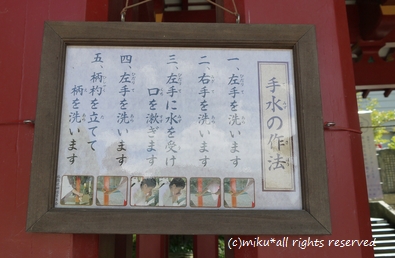 手水の作法
一、左手を洗います
二、右手を洗います
三、左手に水を受け
口を漱ぎます
四、左手を洗います
五、柄杓を立てて
柄を洗います
(c)miku*all rights reserved